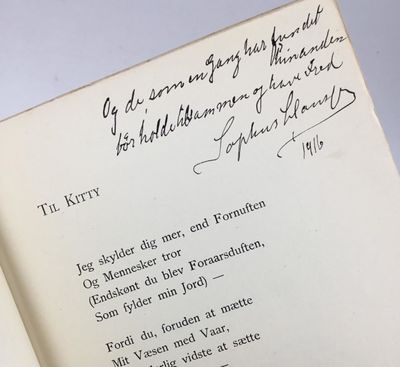 Og de, som en Gang har fundet
hinanden
bør holde til sammen og have Fred
Sophus Claussen
1916
TIL KITTY
Jeg skylder dig mer, end Fornuften
Og Mennesker tror
(Endskønt du blev Foraarsduften,
Som fylder min Jord) —
Fordi du, foruden at mætte
Mit Væsen med Vaar,
vidste at sætte